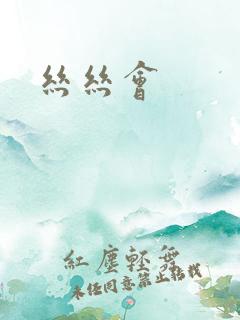 絲絲會
紅塵輕舞
未經同意禁止搭載